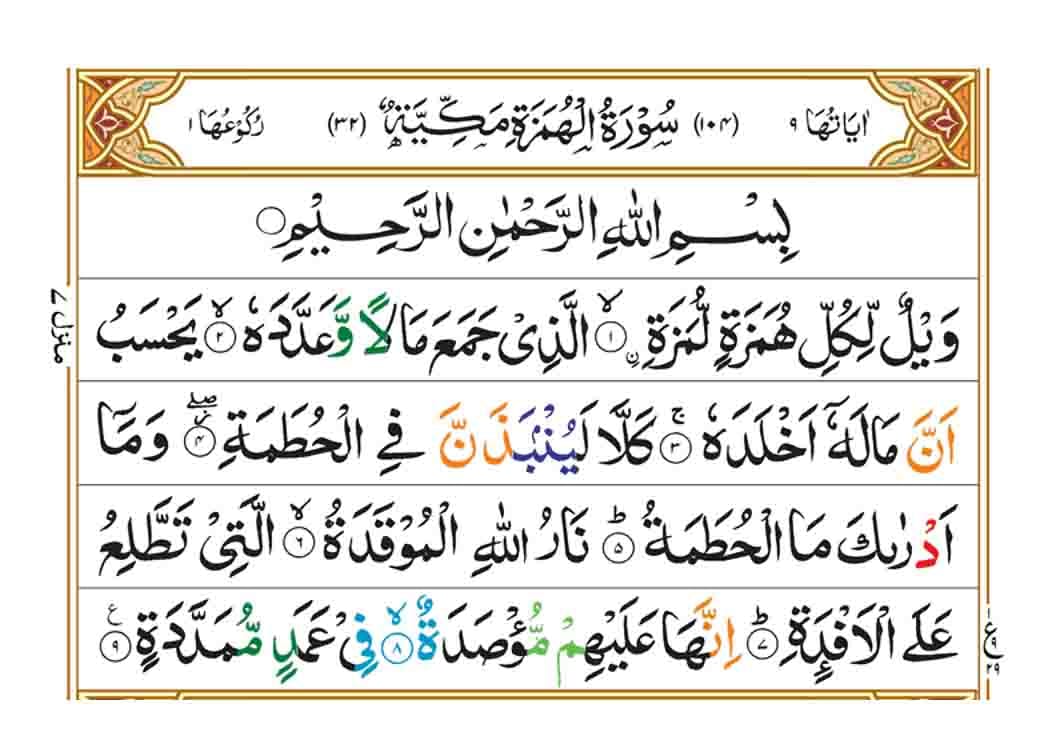 اٰيَاتُهَا ٩ (١٠٤) سُوْرَةُ الْهُمَزَةِ مَكِّيَّةٌ (٣٢) رُكُوْعُهَا ١
بِسْمِ اللّٰهِ الرَّحْمٰنِ الرَّحِيْمِ
وَيْلٌ لِّكُلِّ هُمَزَةٍ لُّمَزَةِ ۙ﴿١﴾ نِ الَّذِىْ جَمَعَ مَالًا وَّعَدَّدَهٗ ۙ﴿٢﴾ يَحْسَبُ
اَنَّ مَالَهٗۤ اَخْلَدَهٗ ۚ﴿٣﴾ كَلَّا لَيُنْۢبَذَنَّ فِى الْحُطَمَةِ ۖ﴿٤﴾ وَمَاۤ
اَدْرٰىكَ مَا الْحُطَمَةُ ؕ﴿٥﴾ نَارُ اللّٰهِ الْمُوْقَدَةُ ۙ﴿٦﴾ الَّتِىْ تَطَّلِعُ
عَلَى الْاَفْـِٕدَةِ ؕ﴿٧﴾ اِنَّهَا عَلَيْهِمْ مُّؤْصَدَةٌ ۙ﴿٨﴾ فِىْ عَمَدٍ مُّمَدَّدَةٍ ﴿٩﴾ ع
منزل ٧
ع ٩ ٢٩